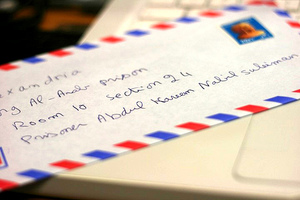 exandria
ng Al-Andr prison
Room 10 section 24
Prisoner Abdul Kareem Nabil Suleiman